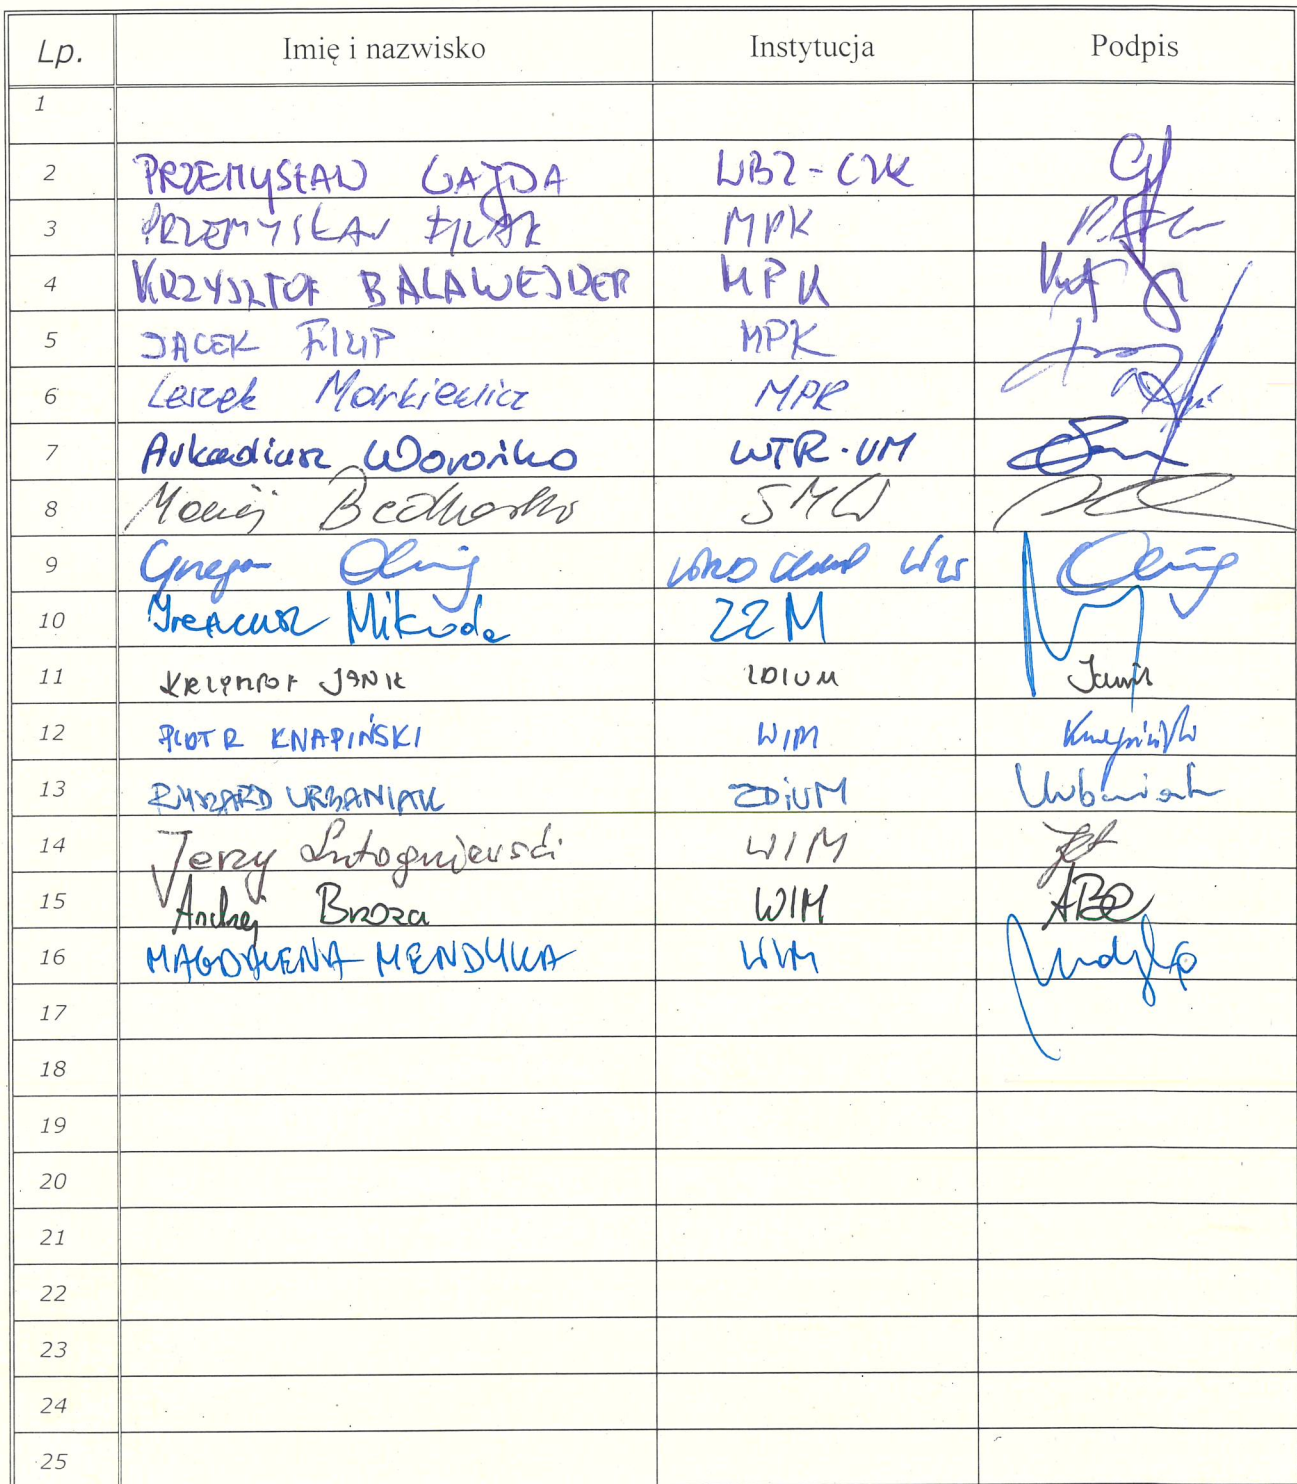 Lp. Imię i nazwisko Instytucja Podpis
1
2 PRZEMYSŁAW GAJDA WBZ-CZK
3 PRZEMYSŁAW MPK
4 KRZYSZTOF BALAWEJDER MPK
5 JACEK FILIP MPK
6 Leszek Markiewicz MPK
7 Arkadiusz Worońko WTR-UM
8 Maciej SMW
9 Grzegorz
10 Ireneusz Mikoda ZZM
11 KRZYSZTOF JANIK ZDIUM Janik
12 PIOTR KNAPIŃSKI WIM Knapiński
13 RYSZARD URBANIAK ZDiUM Urbaniak
14 Jerzy Lutogniewski WIM
15 Andrzej Broza WIM
16 MAGDALENA MENDYKA WIM
17
18
19
20
21
22
23
24
25